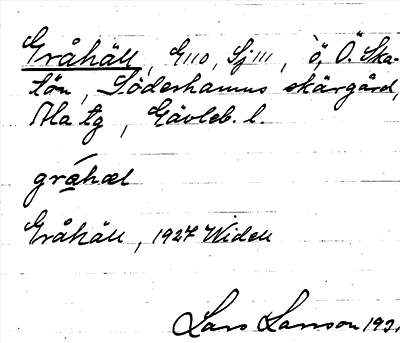 Gråhäll, G110, Sj111, ö, Ö. Ska-
tön, Söderhamns skärgård,
Ala tg, Gävleb. l.
gråhæl
Gråhäll, 1927 Widell
Lars Larsson 1931